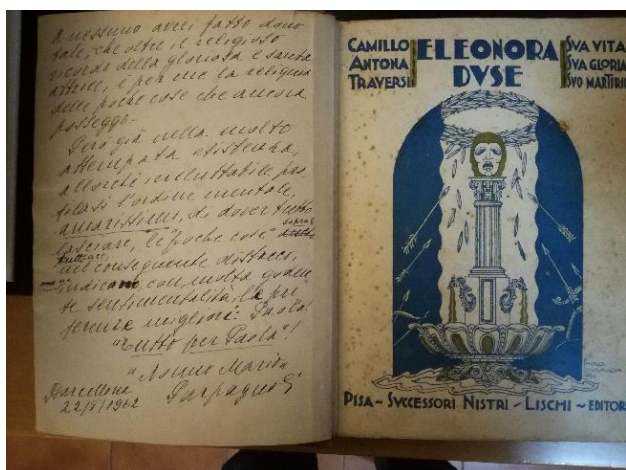 A nessuno avrei fatto dono
tale, che oltre il religioso
ricordo della gloriosa e santa
artista, è per me la reliquia
delle poche cose che ancora
posseggo.
Però già nella molto
attempata esistenza,
allorché ineluttabile pro
filasi l'ordine mentale,
amarissimo, di dover tutto
lasciare, le "poche cose"
sopra
nel conseguente distacco,
indicano, con molta
te sentimentalità, le pre
ferenze migliori: Paola!
"Tutto per Paola"!
"Nonno Mario"
Parpagnoli
Barcellona
22/5/1962
CAMILLO
ANTONA
TRAVERSI
ELEONORA
DVSE
SVA VITA
SVA GLORIA
SVO MARTIRIO
PISA ~ SVCCESSORI NISTRI ~ LISCHI ~ EDITOR